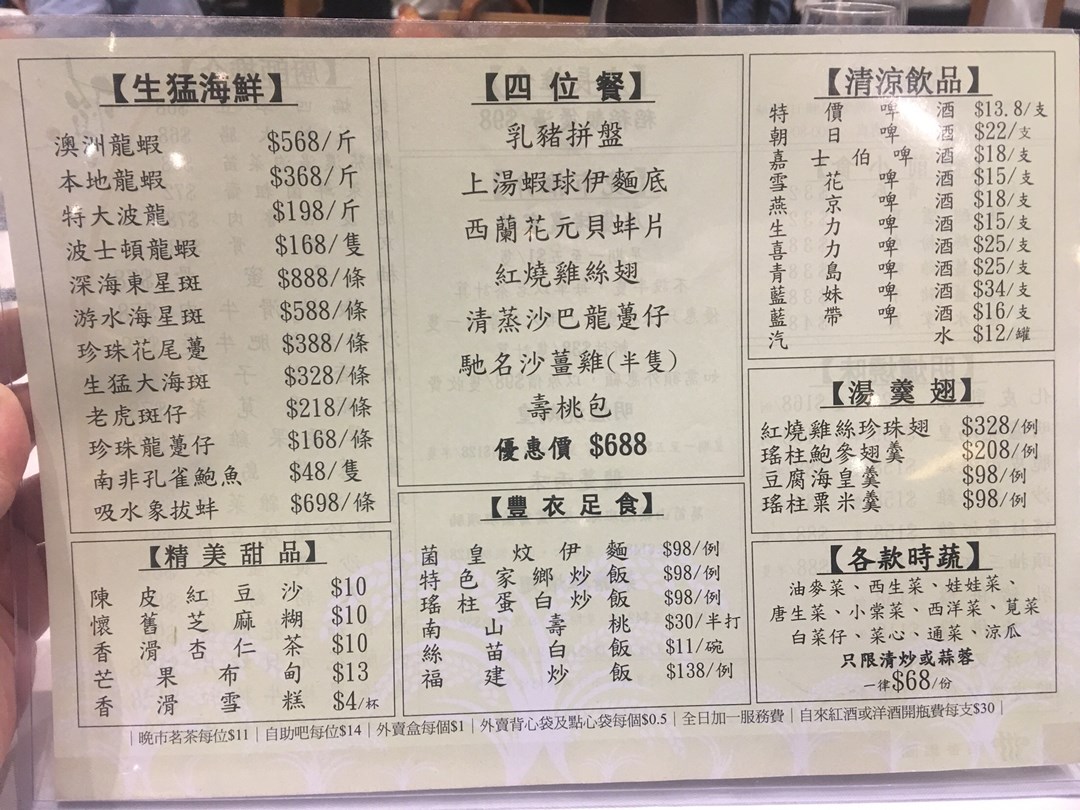 【生猛海鮮】
澳洲龍蝦 $568/斤
本地龍蝦 $368/斤
特大波龍 $198/斤
波士頓龍蝦 $168/隻
深海東星斑 $888/條
游水海星斑 $588/條
珍珠花尾躉 $388/條
生猛大海斑 $328/條
老虎斑仔 $218/條
珍珠龍躉仔 $168/條
南非孔雀鮑魚 $48/隻
吸水象拔蚌 $698/條
【精美甜品】
陳皮紅豆沙 $10
懷舊芝麻糊 $10
香滑杏仁茶 $10
芒果布甸 $13
香滑雪糕 $4/杯
【四位餐】
乳豬拼盤
上湯蝦球伊麵底
西蘭花元貝蚌片
紅燒雞絲翅
清蒸沙巴龍躉仔
馳名沙薑雞(半隻)
壽桃包
優惠價 $688
【豐衣足食】
菌皇炆伊麵 $98/例
特色家鄉炒飯 $98/例
瑤柱蛋白炒飯 $98/例
南山壽桃 $30/半打
絲苗白飯 $11/碗
福建炒飯 $138/例
【清涼飲品】
特價啤酒 $13.8/支
朝日啤酒 $22/支
嘉士伯啤酒 $18/支
雪花啤酒 $15/支
燕京啤酒 $18/支
生力啤酒 $15/支
喜力啤酒 $25/支
青島啤酒 $25/支
藍妹啤酒 $34/支
藍帶啤酒 $16/支
汽水 $12/罐
【湯羹翅】
紅燒雞絲珍珠翅 $328/例
瑤柱鮑參翅羹 $208/例
豆腐海皇羹 $98/例
瑤柱粟米羹 $98/例
【各款時蔬】
油麥菜、西生菜、娃娃菜、
唐生菜、小棠菜、西洋菜、莧菜
白菜仔、菜心、通菜、涼瓜
只限清炒或蒜蓉
一律$68/份
|晚市茗茶每位$11|自助吧每位$14|外賣盒每個$1|外賣背心袋及點心袋每個$0.5|全日加一服務費|自來紅酒或洋酒開瓶費每支$30|